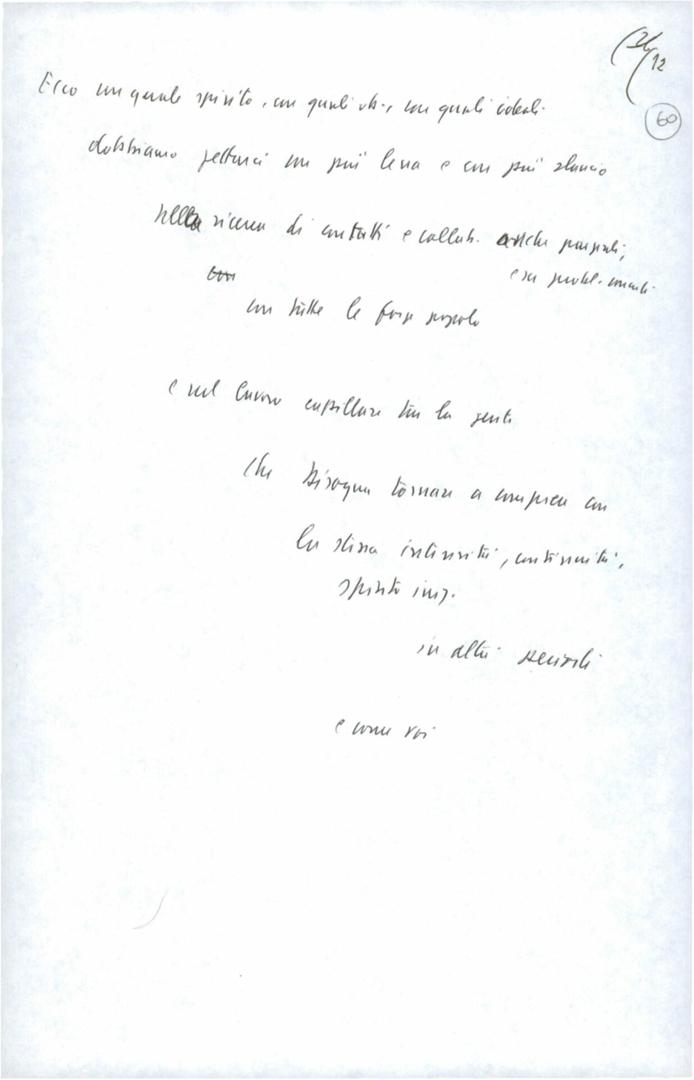 60
Ecco con quale spirito, con quali ob., con quali ideali
dobbiamo gettarci con più lena e con più slancio
nella ricerca di contatti e collab. anche parziali,
con
e su probl.
con tutte le forze popolo
e nel lavoro capillare tra la gente
che bisogna tornare a compiere con
la stessa intensità, continuità,
spirito iniz.
in altri
e come voi